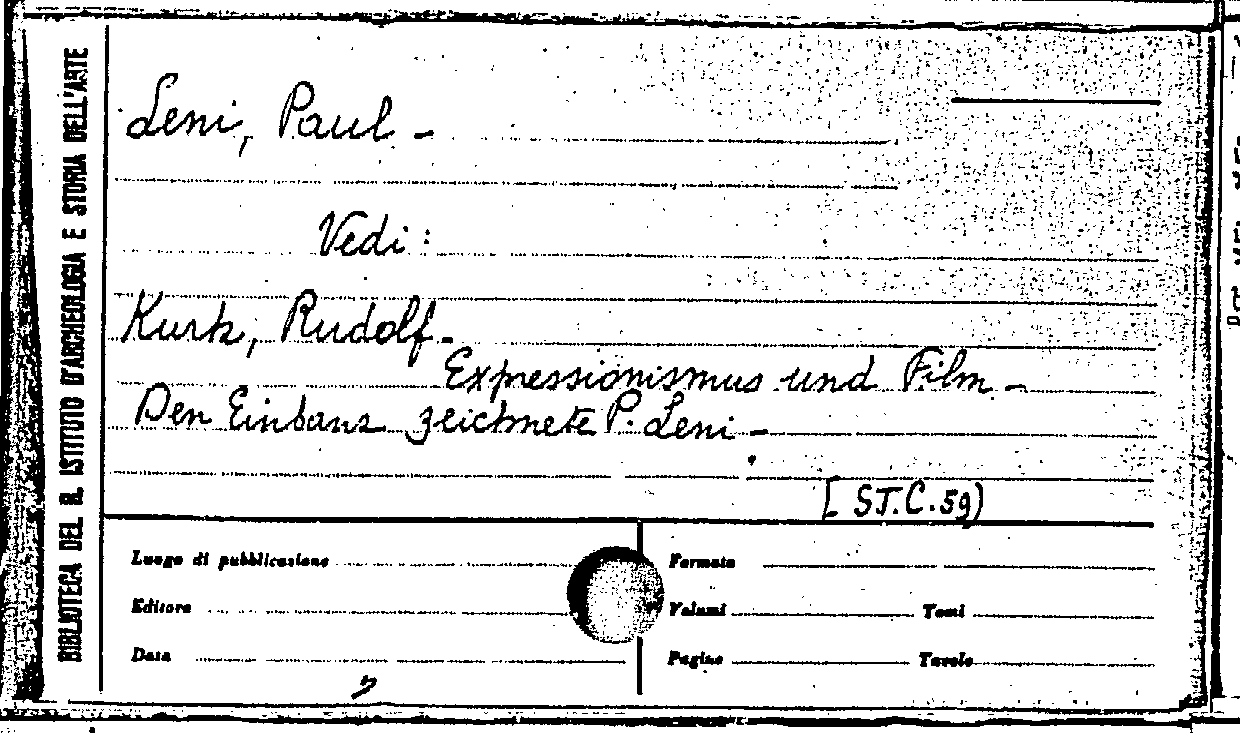 BIBLIOTECA DEL R. ISTITUTO D'ARCHEOLOGIA E STORIA DELL'ARTE
Leni, Paul -
Vedi :
Kurtz, Rudolf -
Expressionismus und Film -
Den Einband zeichnete P. Leni -
[ ST.C.59)
Luogo di pubblicazione
Editore
Data
Formato
Volumi Tomi
Pagine Tavole